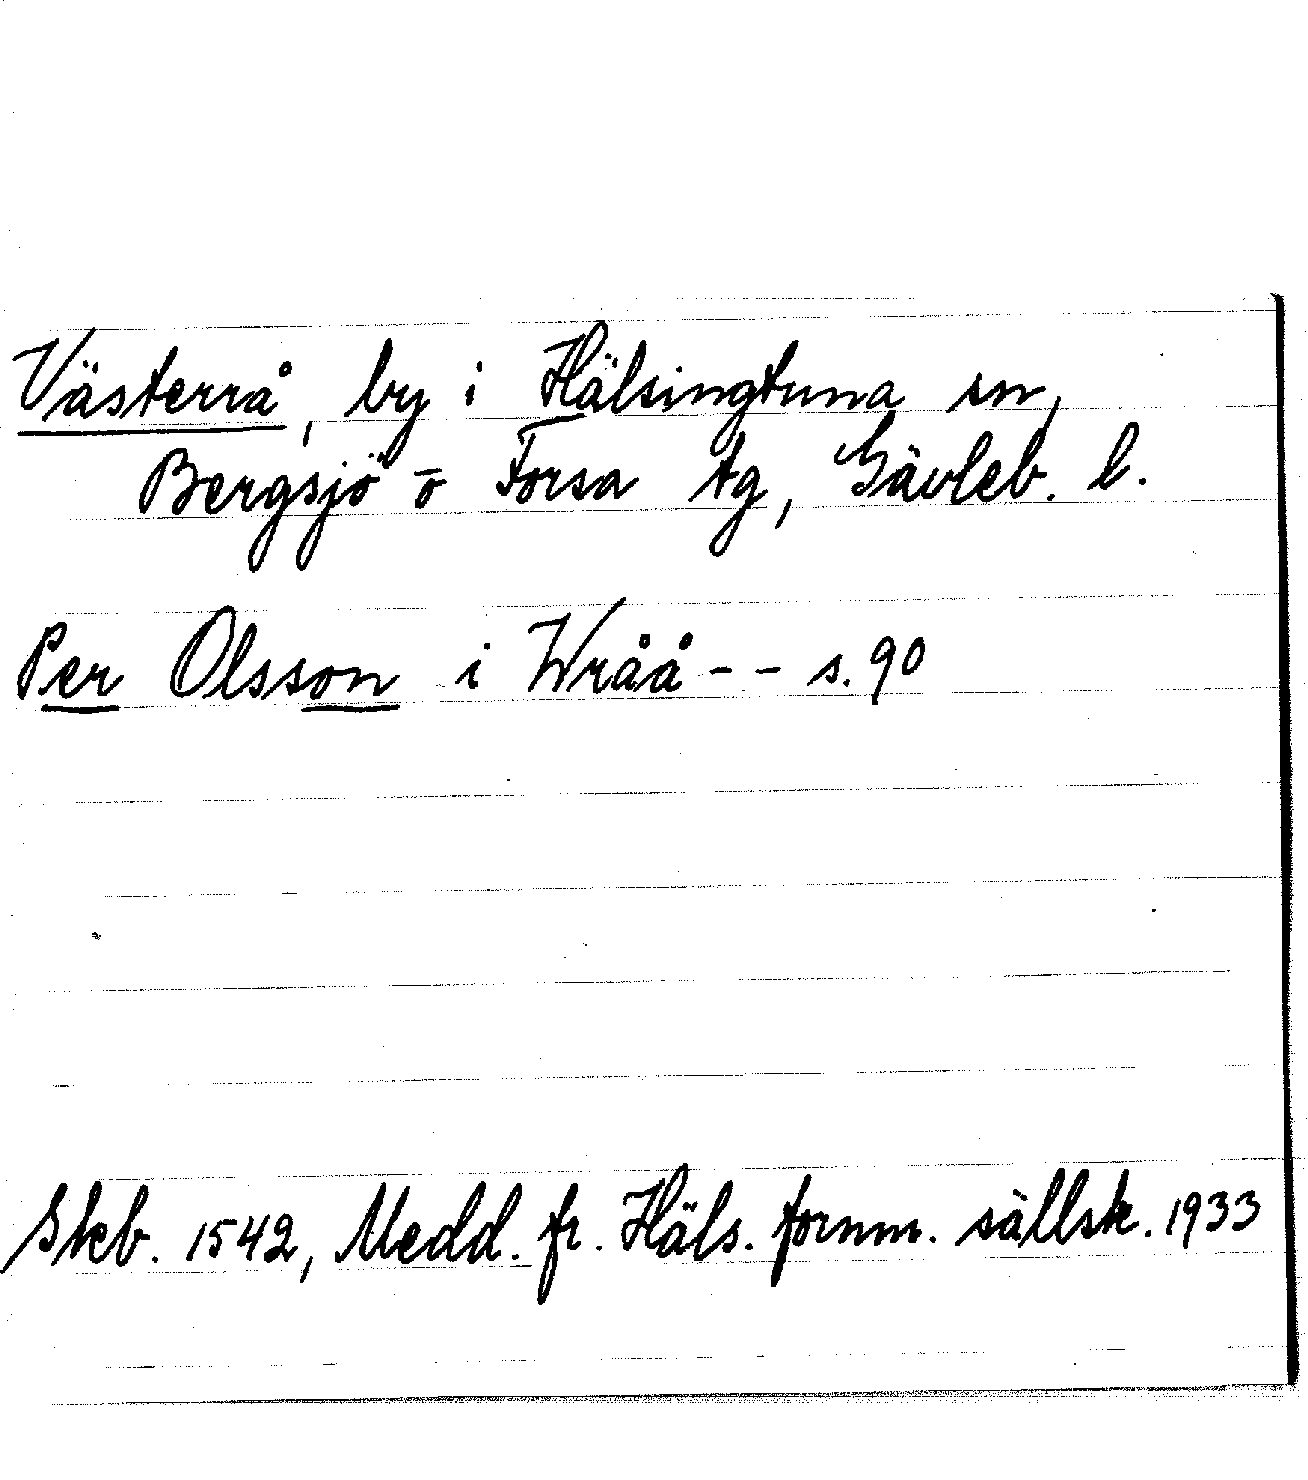 Västerrå, by i Hälsingtuna sn,
Bergsjö o Forsa tg, Gävleb. l.
Per Olsson i Wråå - - s. 90
Skb. 1542, Medd. fr. Häls. fornm. sällsk. 1933